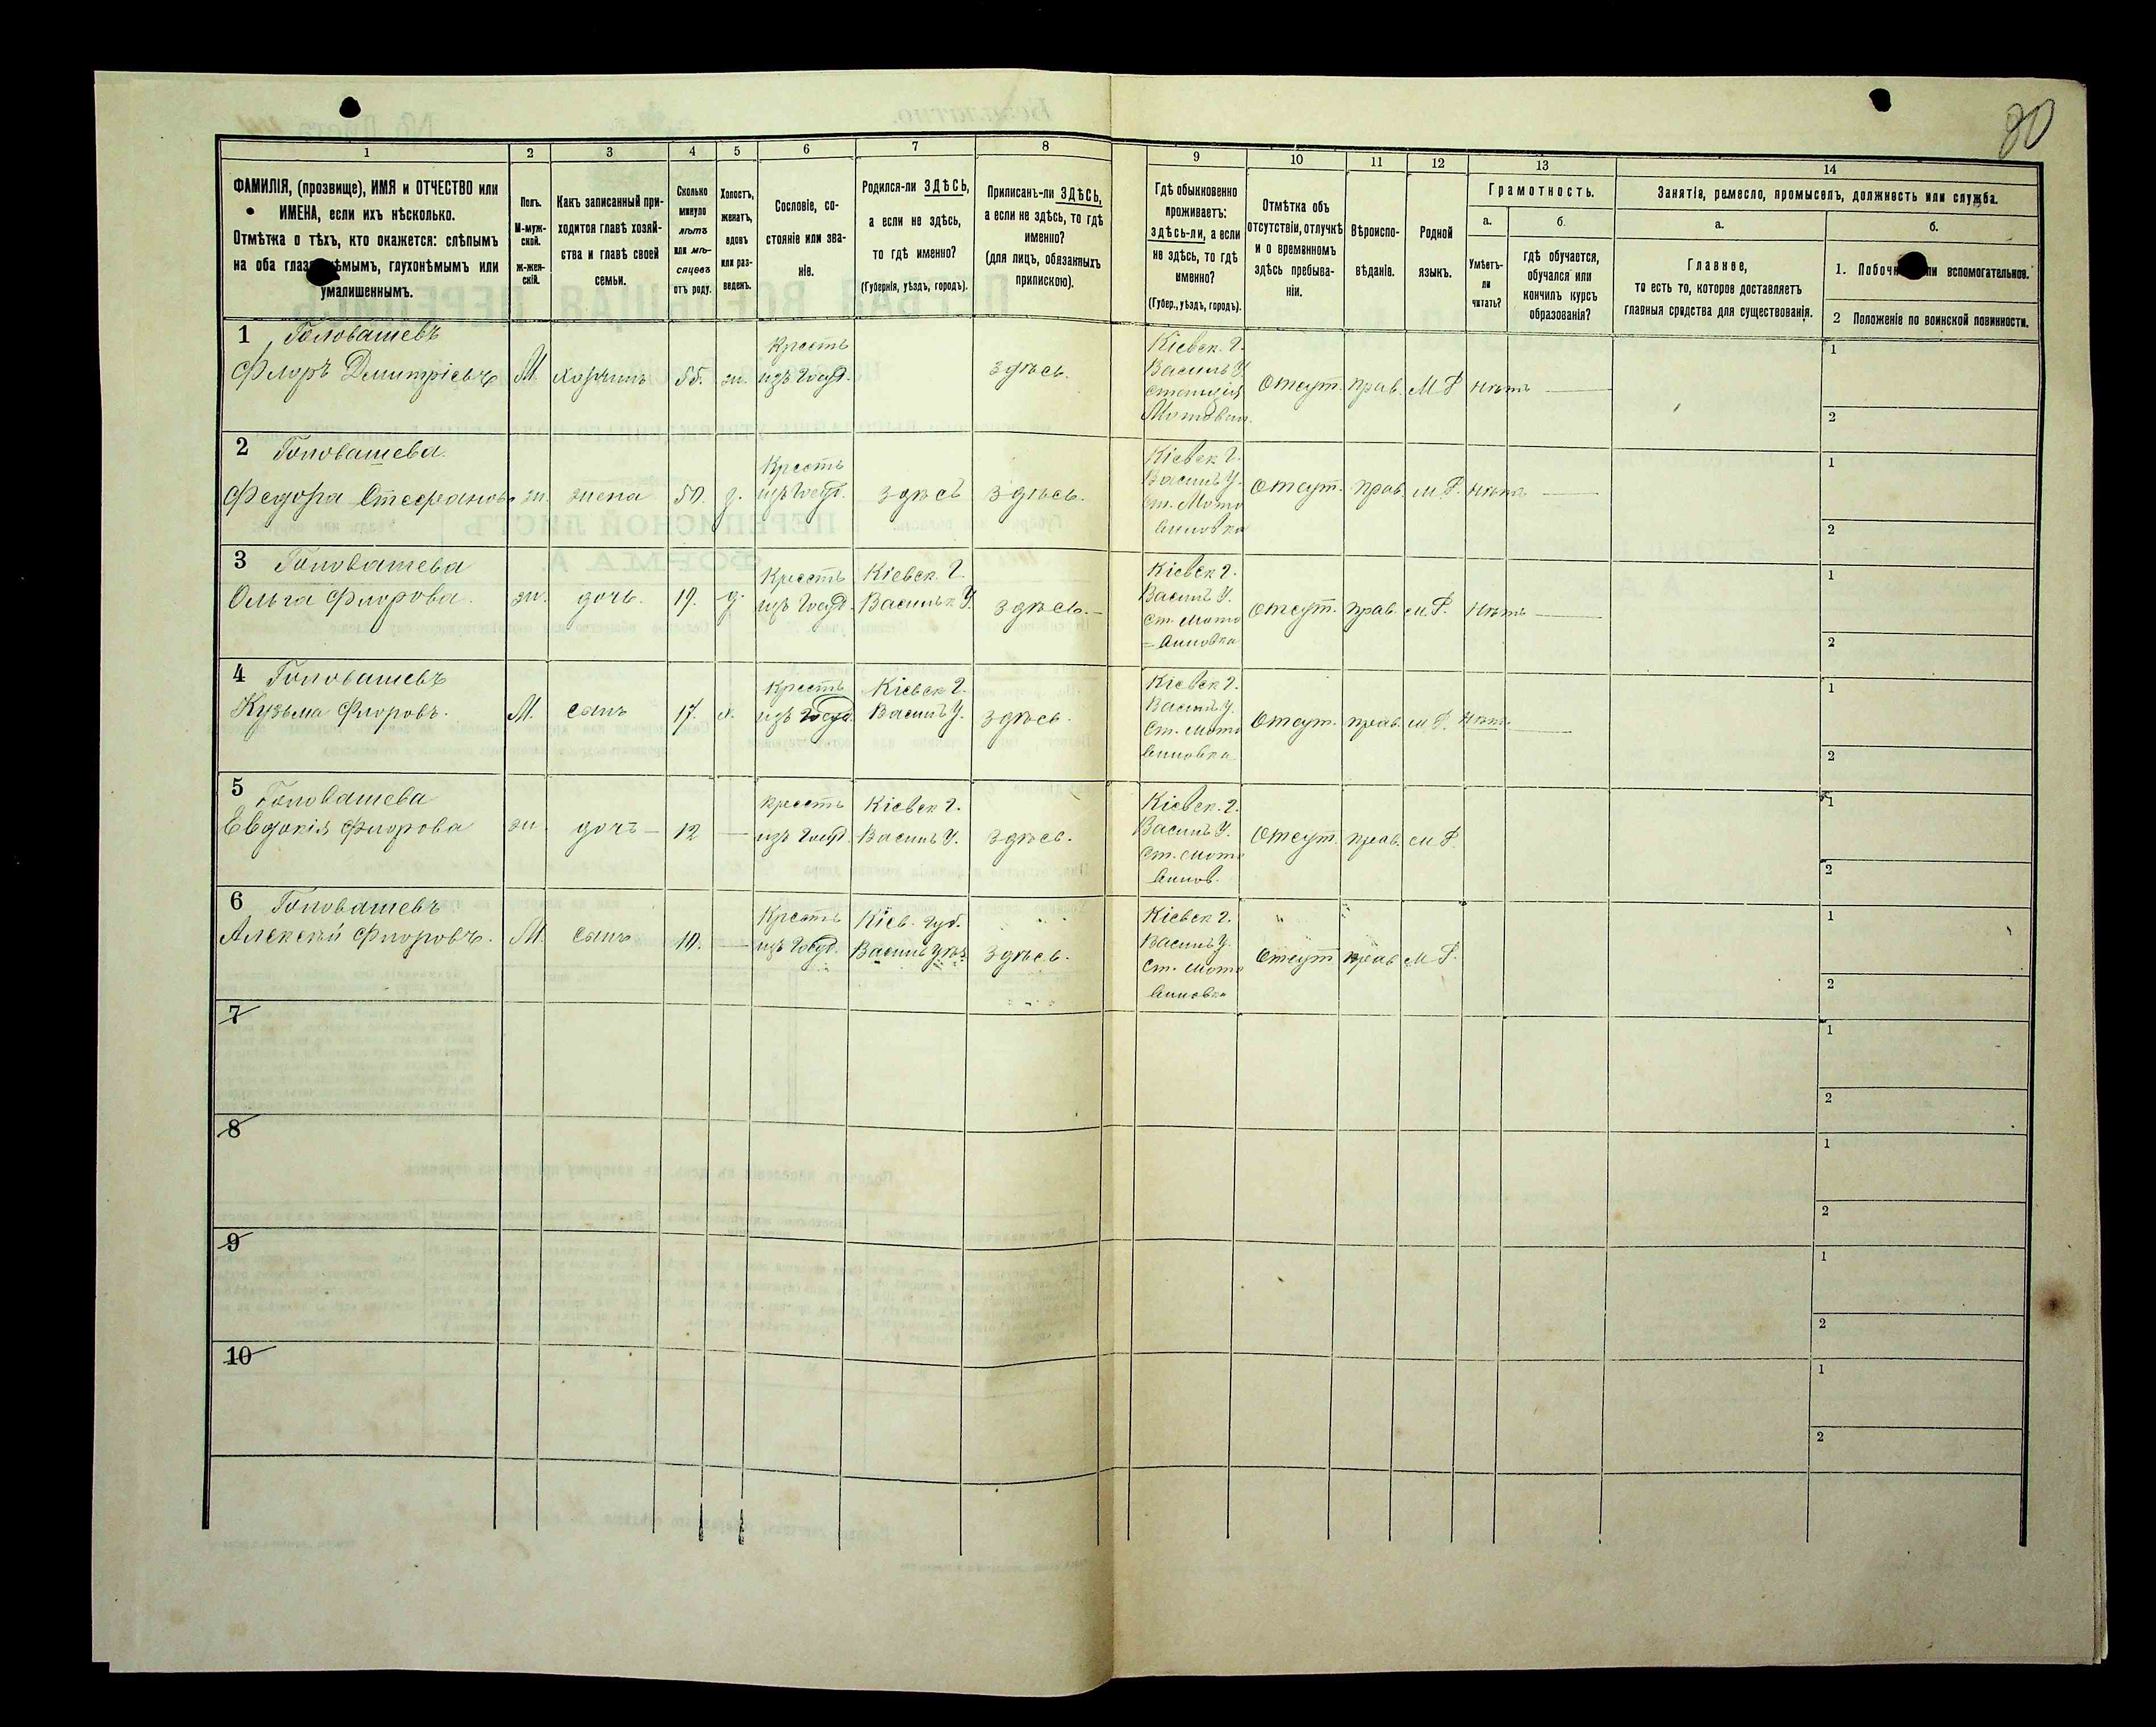 20
1 2 3 4 5 6 7 8 9 10 11 12 13 14
ФАМИЛІЯ, (прозвище), ИМЯ и ОТЧЕСТВО или
ИМЕНА, если ихъ нѣсколько.
Отмѣтка о тѣхъ, кто окажется: слѣпымъ
на оба глаза, нѣмымъ, глухонѣмымъ или
умалишеннымъ.
Полъ.
М-муж-
ской.
Ж-жен-
скій.
Какъ записанный при-
ходится главѣ хозяй-
ства и главѣ своей
семьи.
Сколько
минуло
лѣтъ
или мѣ-
сяцевъ
отъ роду.
Холостъ,
женатъ,
вдовъ
или раз-
веденъ.
Сословіе, со-
стояніе или зва-
ніе.
Родился-ли ЗДѢСЬ,
а если не здѣсь,
то гдѣ именно?
(Губернія, уѣздъ, городъ).
Приписанъ-ли ЗДѢСЬ,
а если не здѣсь, то гдѣ
именно?
(для лицъ, обязанныхъ
припискою).
Гдѣ обыкновенно
проживаетъ:
здѣсь-ли, а если
не здѣсь, то гдѣ
именно?
(Губер., уѣздъ, городъ).
Отмѣтка объ
отсутствіи, отлучкѣ
и о временномъ
здѣсь пребыва-
ніи.
Вѣроиспо-
вѣданіе.
Родной
языкъ.
Грамотность.
а. б.
Умѣетъ-
ли
читать?
гдѣ обучается,
обучался или
кончилъ курсъ
образованія?
Занятія, ремесло, промыселъ, должность или служба.
а. б.
Главное,
то есть то, которое доставляетъ
главныя средства для существованія.
1. Побочное или вспомогательное.
2 Положеніе по воинской повинности.
1 Головашевъ
Флоръ Дмитріевъ М хозяинъ 55. ж. Крестъ
изъ Госуд. здѣсь. Кіевск. г.
Василь У.
станція
Мотовил. Отсут. прав. М Р нѣтъ 1
2
2 Головашева
Федора Стефанов. ж. жена 50. з. Крестъ
изъ Госуд. здѣсь здѣсь. Кіевск г.
Василь У.
ст. Мото
виловка Отсут. прав. м Р. нѣтъ 1
2
3 Головашева
Ольга Флорова. ж. дочь. 19. д. Крестъ
изъ Госуд. Кіевск. г.
Васильк У. здѣсь. Кіевск г.
Василь У.
Ст. Мото
=виловка Отсут. прав. м Р. нѣтъ 1
2
4 Головашевъ
Кузьма Флоровъ. М. сынъ 17. х. Крестъ
изъ Госуд. Кіевск г.
Василь У. здѣсь. Кіевск г.
Василь У.
Ст. Мото
виловка Отсут. прав. м Р. нѣтъ 1
2
5 Головашева
Евдокія Флорова ж. дочь 12 Крестъ
изъ Госуд. Кіевск г.
Василь У. здѣсь. Кіевск. г.
Василь У.
Ст. Мото
вилов. Отсут. прав. м Р. 1
2
6 Головашевъ
Алексѣй Флоровъ. М. сынъ 10. Крестъ
изъ Госуд. Кіев. Губ.
Василь Уѣз. здѣсь. Кіевск г.
Василь У.
Ст. Мото
виловка Отсут прав м Р. 1
2
7 1
2
8 1
2
9 1
2
10 1
2